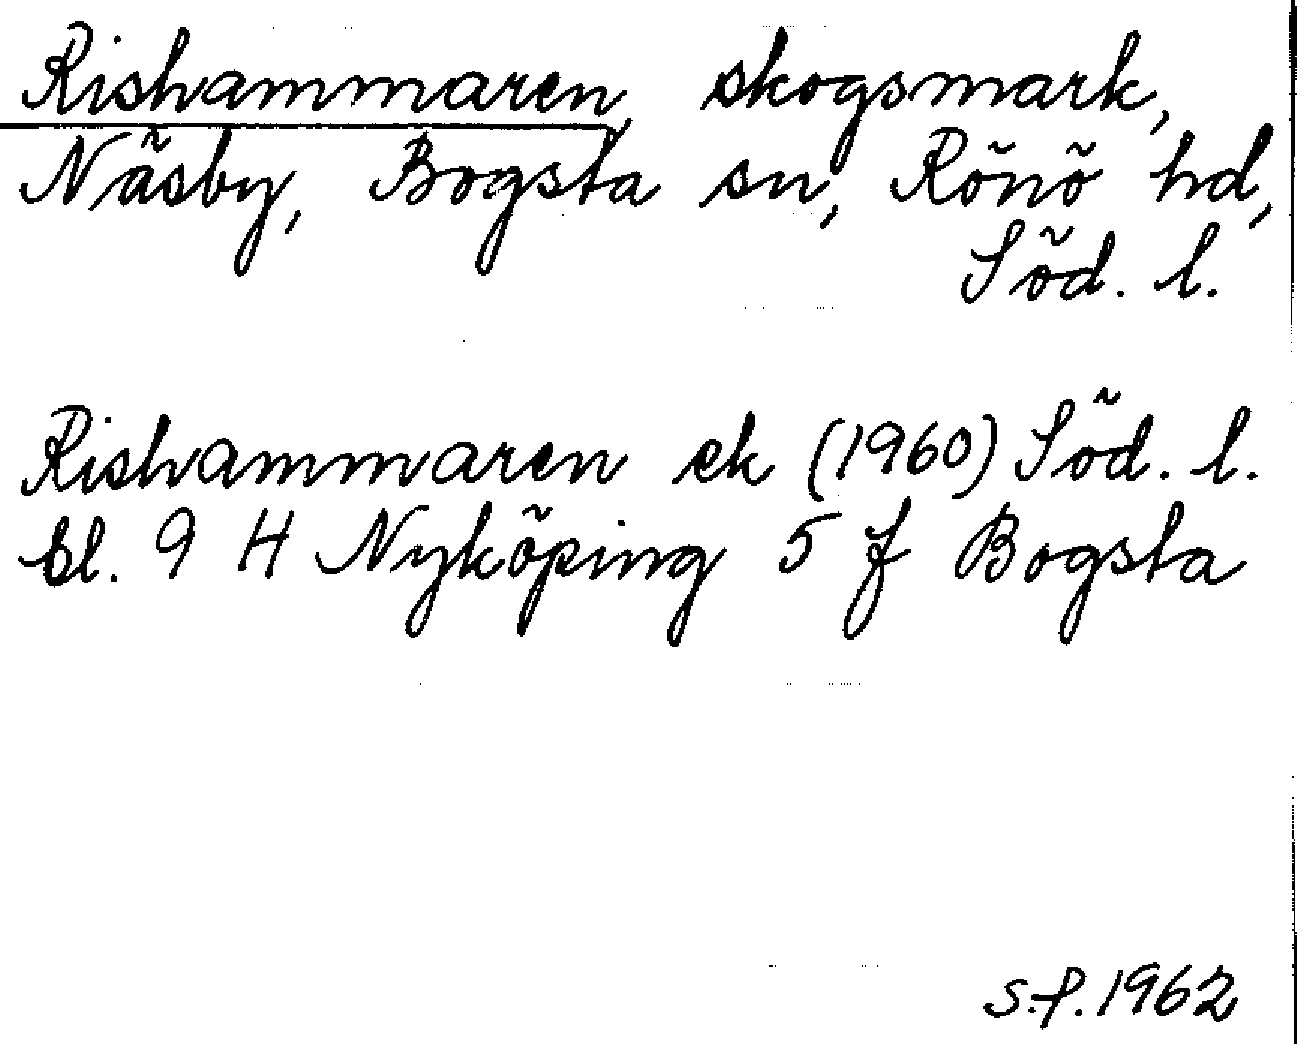 Rishammaren, skogsmark,
Näsby, Bogsta sn, Rönö hd,
Söd. l.
Rishammaren ek (1960) Söd. l.
bl. 9 H Nyköping 5 f Bogsta
S.P. 1962